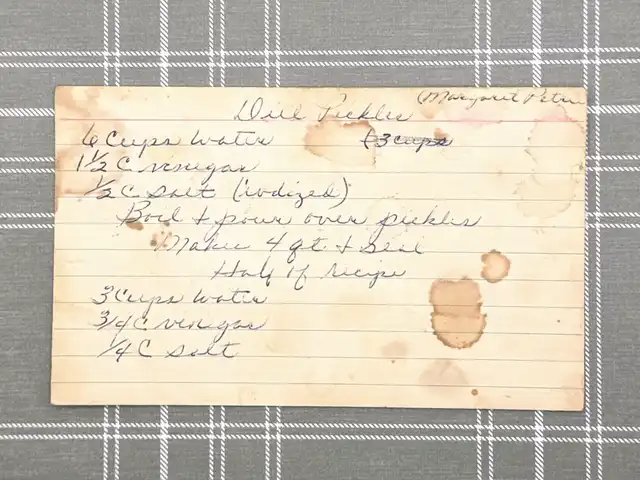 (Margaret
Dill Pickles
6 Cups Water (3 cups
1½ C vinegar
½ C salt (iodized)
Boil + pour over pickles
Makes 4 qt. + seal
Half of recipe
3 Cups Water
3/4 C vinegar
1/4 C salt